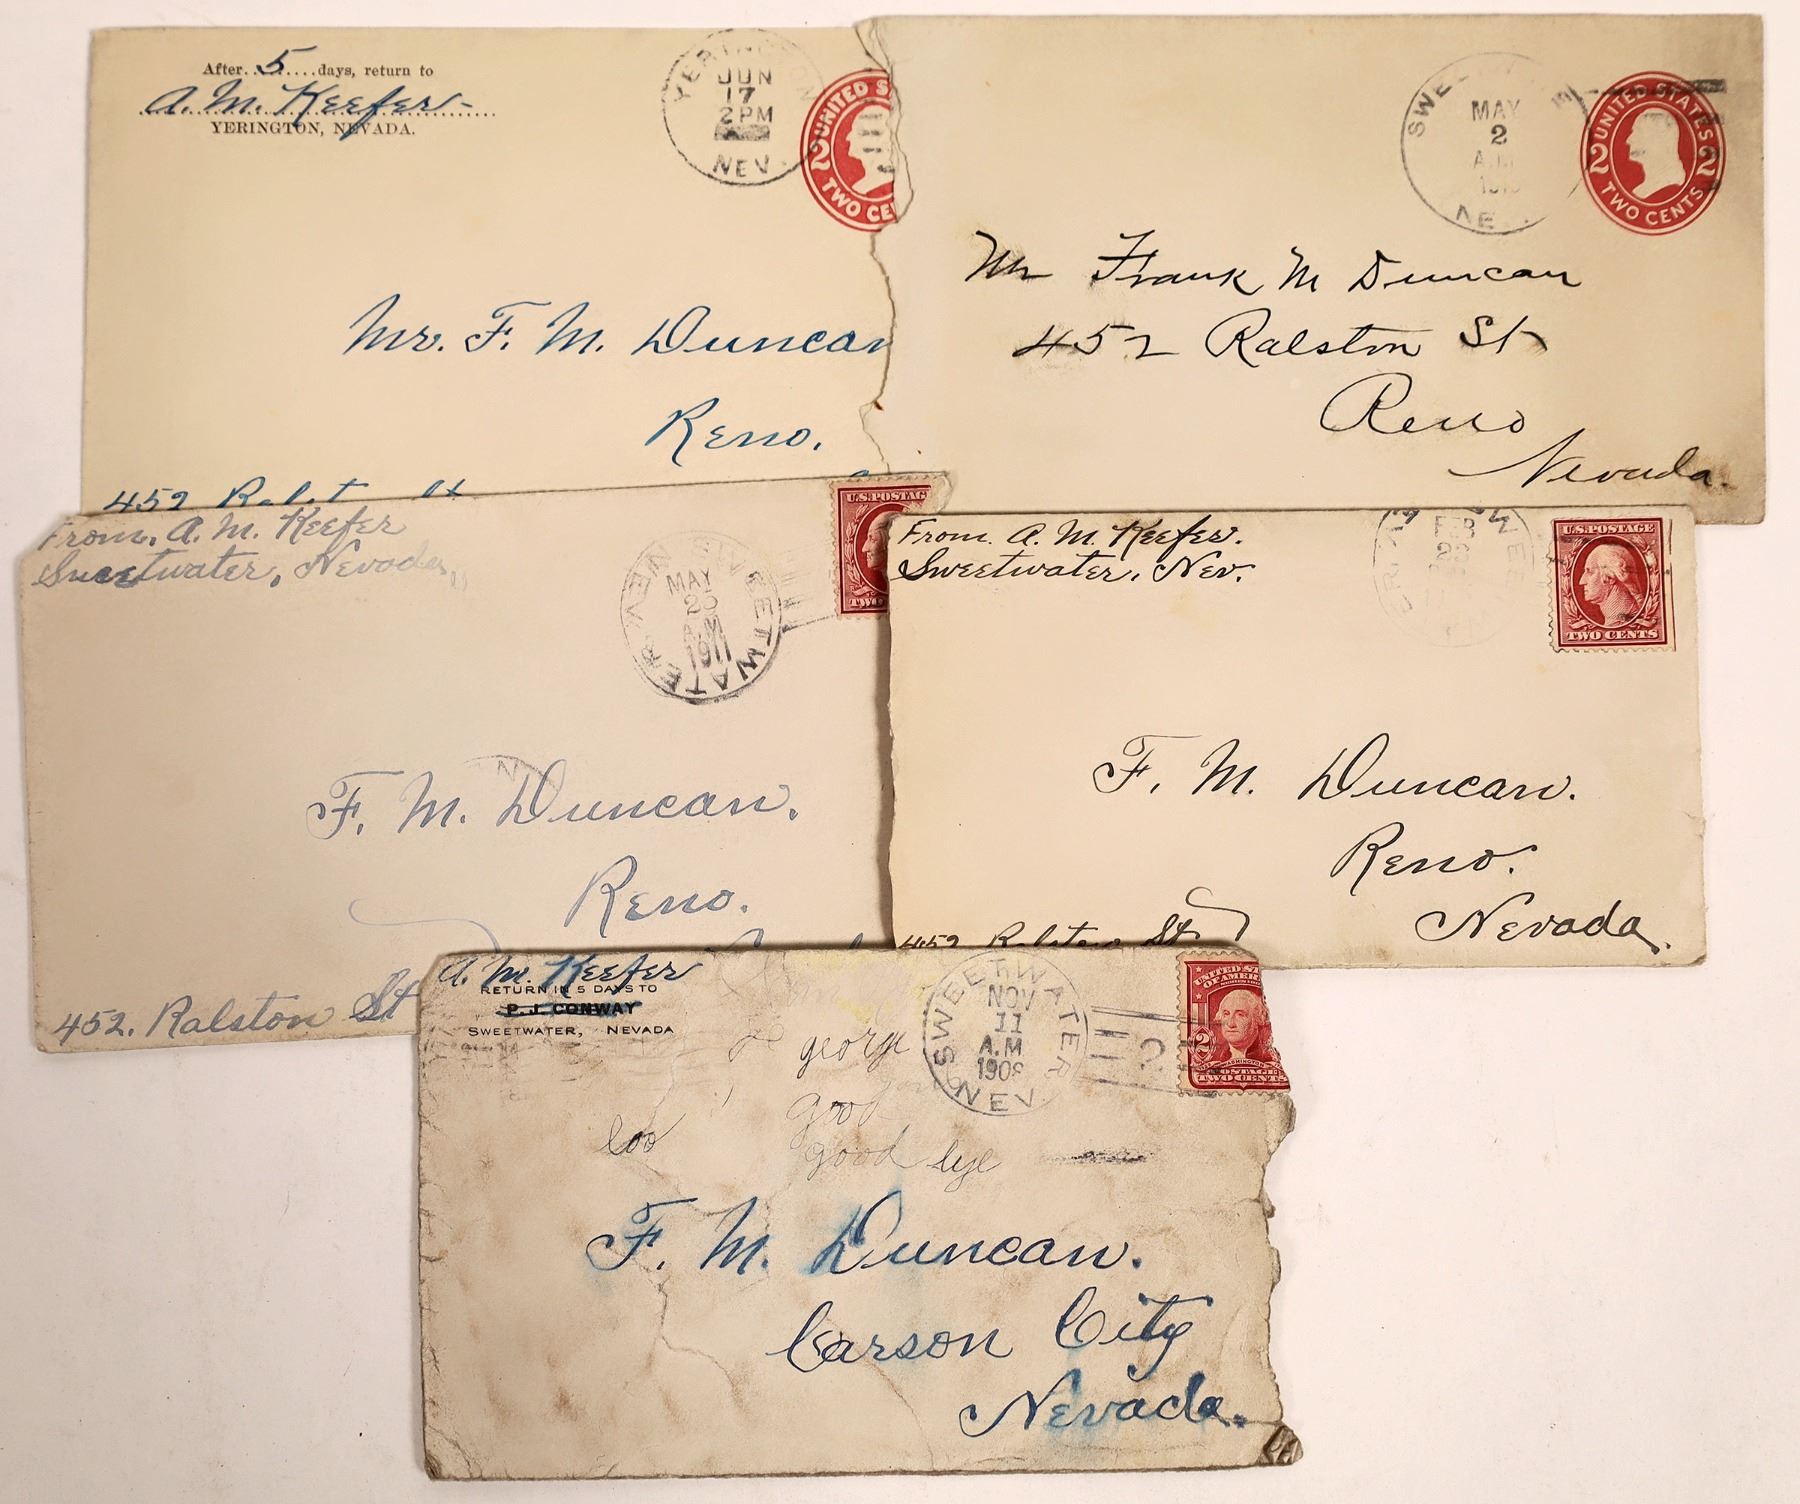 After 5 days, return to
A. M. Keefer
YERINGTON, NEVADA.
YERINGTON
JUN
17
2PM
NEV.
UNITED S
2
TWO CE
Mr. F. M. Duncan
Reno.
452 Ralston St
MAY
2
A.M.
UNITED STATES
2 2
TWO CENTS
Mr Frank M Duncan
452 Ralston St
Reno
Nevada.
From. A. M. Keefer
Sweetwater, Nevada,
SWEETWATER NEV
MAY
20
A.M
1911
U.S. POSTAG
TWO
F. M. Duncan.
Reno.
452. Ralston St
From. A. M. Keefer.
Sweetwater, Nev.
FEB
U.S. POSTAGE
TWO CENTS
F. M. Duncan.
Reno.
Nevada.
452 Ralston St
A. M. Keefer
RETURN IN 5 DAYS TO
P. J. CONWAY
SWEETWATER, NEVADA
SWEETWATER
NOV
11
A.M
190
NEV.
2
UNITED ST
OF AMER
2
WASHINGTON
POSTAGE
TWO CENTS
george
good
good bye
F. M. Duncan.
Carson City
Nevada.